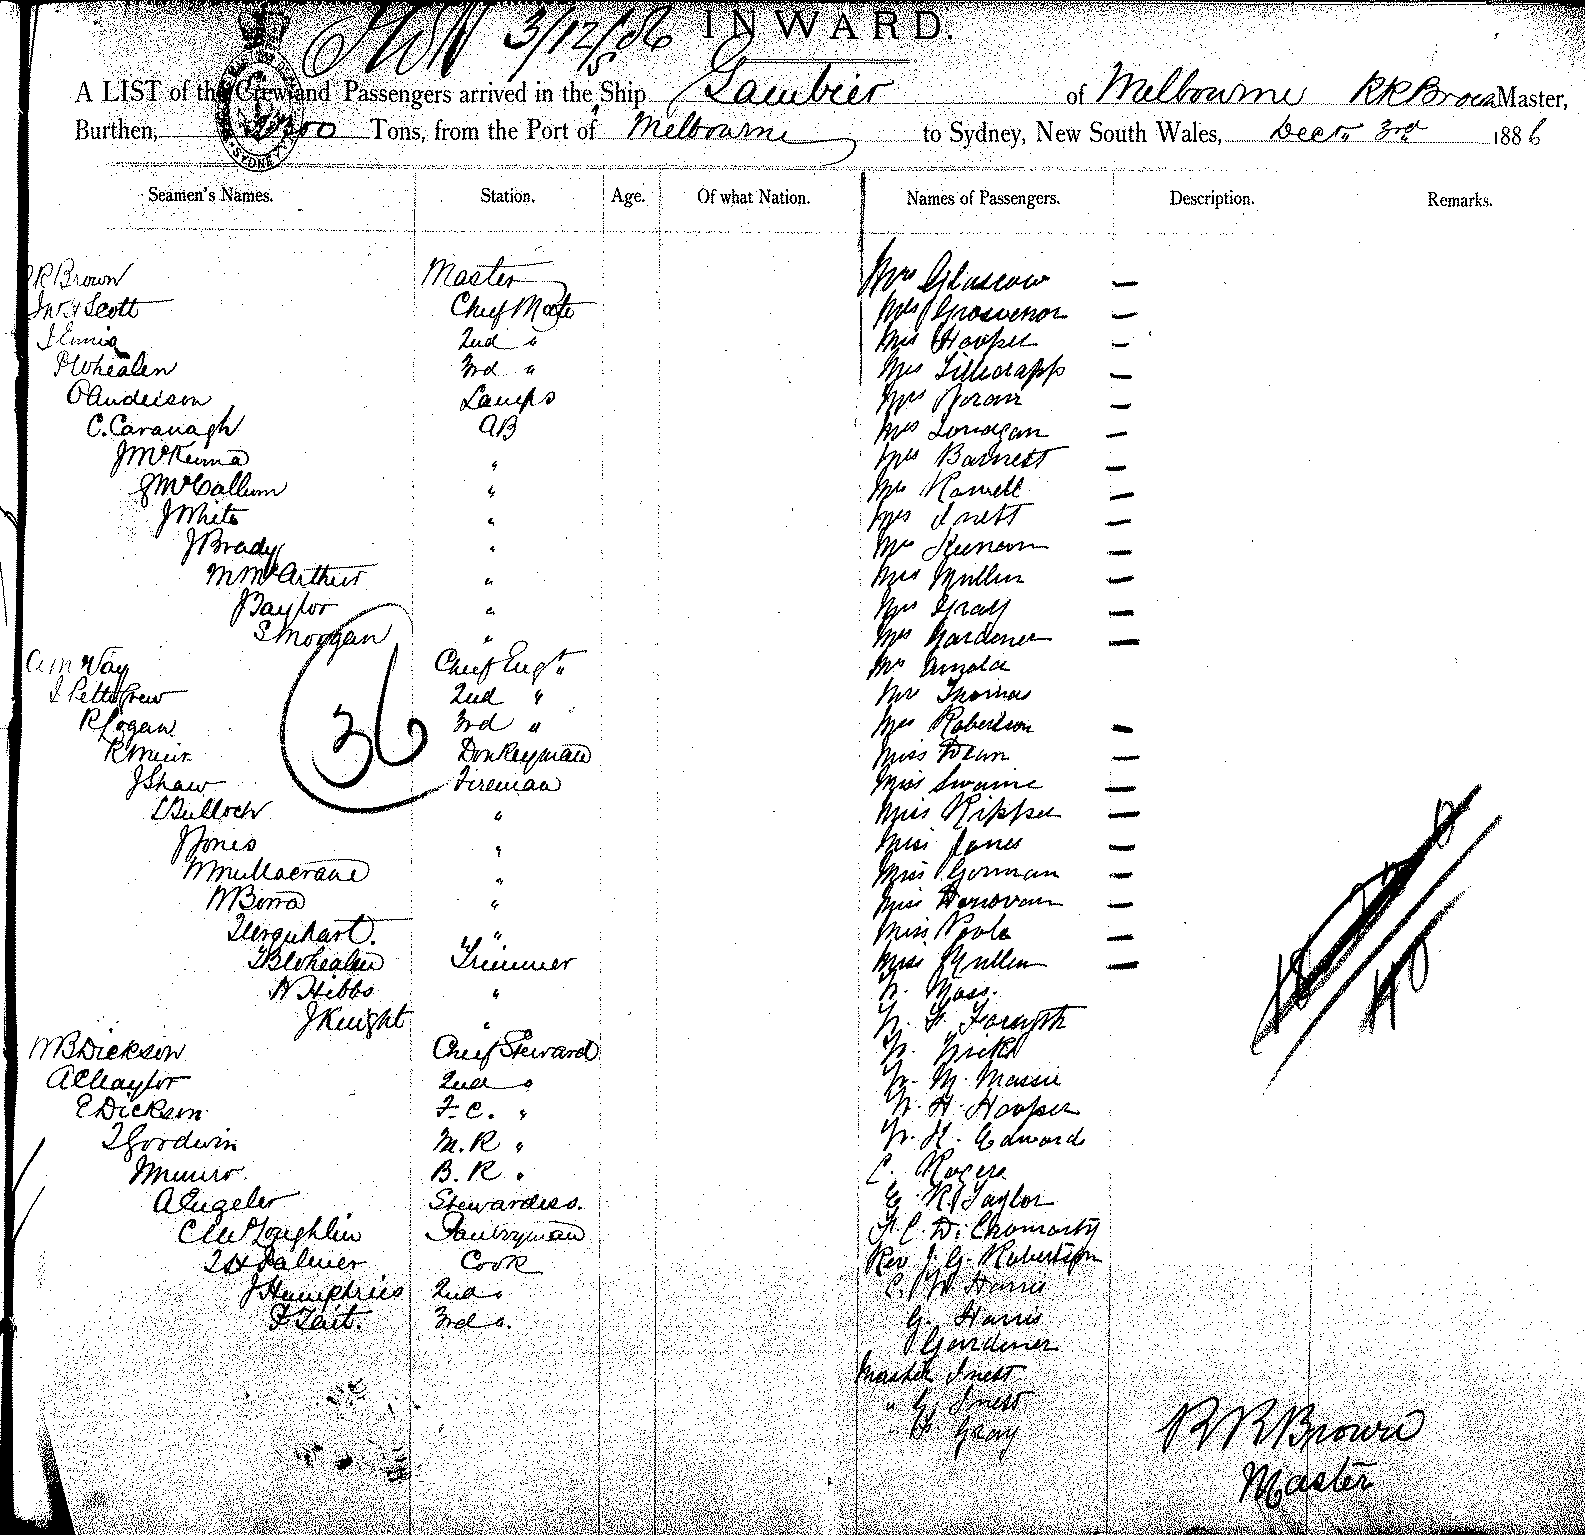 3/12/86 INWARD.
A LIST of the Crew and Passengers arrived in the Ship Gambier of Melbourne RR Brown Master,
Burthen, Tons, from the Port of Melbourne to Sydney, New South Wales, Decr 3rd 1886
Seamen's Names. Station. Age. Of what Nation. Names of Passengers. Description. Remarks.
RR Brown Master Mrs Glascow —
Jno H Scott Chief Mate Mrs Grosvenor —
2nd " Mrs Hooper —
P Whealen 3rd " Mrs —
O Anderson Lamps Mrs —
C. Cavanagh AB Mrs Londgan —
J McKenna " Mrs Barnett —
J McCallum " Mrs Rowell —
J White " Mrs —
J Brady " Mrs Keenan —
M McArthur " Mrs Mullen —
J Baylor " Mrs Gray —
S Morgan " Mrs Gardener —
A M Way Chief Engr " Mrs Arnold
J Pettigrew 2nd " Mrs Thomas
R Logan 3rd " Mrs Robertson —
36
R Muir Donkeyman Miss Dean —
J Shaw Fireman Miss Swaine —
Bulloch " Miss Kipper —
J Jones " Miss Jones —
" Miss Gorman —
" Miss Donovan —
Urquhart. " Miss Poole —
Whealen Trimmer Miss Mullen —
H Hibbs " Moss.
J Knight " Forsyth
W B Dickson Chief Steward
A C Naylor 2nd " M. Massie
E Dickson F. C. " H. Hooper
J Goodwin M. R " Edwards
J Munro B. R " C. Rogers
A Engeler Stewardess. R. Taylor
C McLoughlin Pantryman
Palmer Cook Rev J. G. Robertson
J Humphries 2nd " C. W Harris
F Tait. 3rd ". G. Harris
Gardener
Master
" G.
" Gray
R R Brown
Master